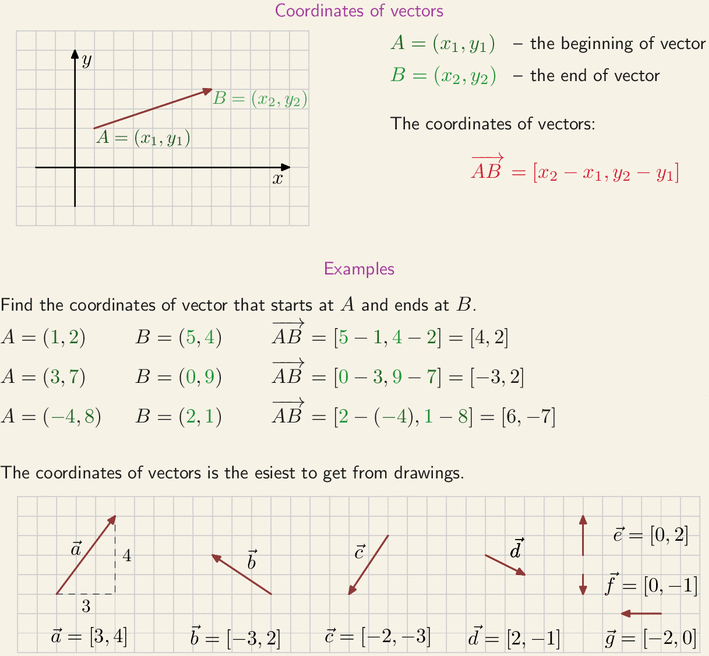 Coordinates of vectors
y
B = (x₂, y₂)
A = (x₁, y₁)
x
A = (x₁, y₁) – the beginning of vector
B = (x₂, y₂) – the end of vector
The coordinates of vectors:
\overrightarrow{AB} = [x₂ − x₁, y₂ − y₁]
Examples
Find the coordinates of vector that starts at A and ends at B.
A = (1, 2) B = (5, 4) \overrightarrow{AB} = [5 − 1, 4 − 2] = [4, 2]
A = (3, 7) B = (0, 9) \overrightarrow{AB} = [0 − 3, 9 − 7] = [−3, 2]
A = (−4, 8) B = (2, 1) \overrightarrow{AB} = [2 − (−4), 1 − 8] = [6, −7]
The coordinates of vectors is the esiest to get from drawings.
\vec{a} 4
3
\vec{a} = [3, 4]
\vec{b}
\vec{b} = [−3, 2]
\vec{c}
\vec{c} = [−2, −3]
\vec{d}
\vec{d} = [2, −1]
\vec{e} = [0, 2]
\vec{f} = [0, −1]
\vec{g} = [−2, 0]